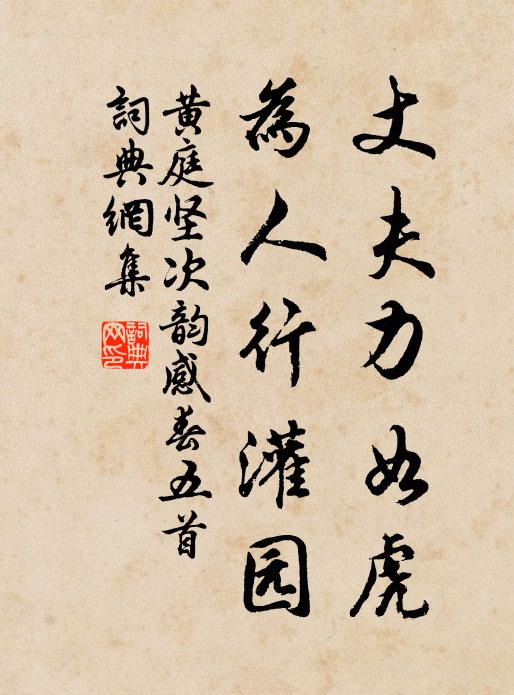 丈夫力如虎
為人行灌园
黄庭坚次韵感春五首
詞典網集
詞典网印